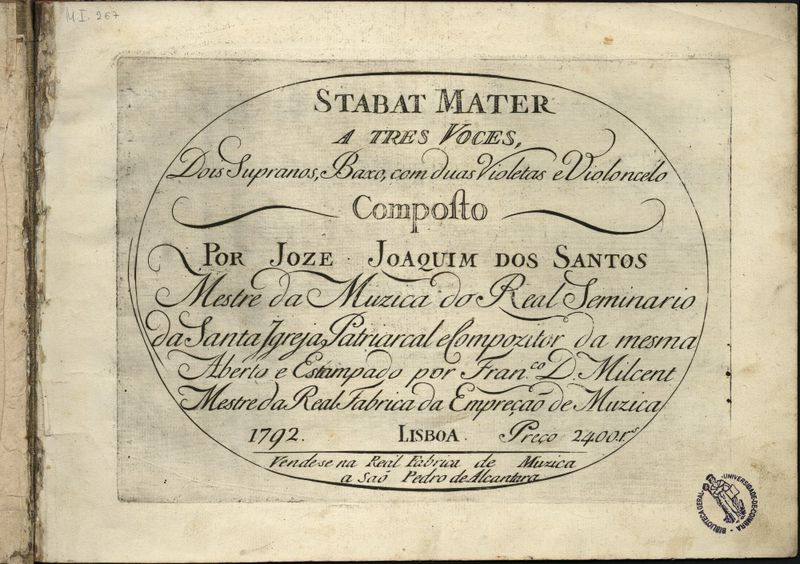 M.I. 267
STABAT MATER
A TRES VOCES,
Dois Supranos, Baxo, com duas Violetas e Violoncelo
Compoſto
POR JOZE JOAQUIM DOS SANTOS
Mestre da Muzica do Real Seminario
da Santa Igreja Patriarcal e Compozitor da mesma
Aberto e Estampado por Fran.co D. Milcent
Mestre da Real Fabrica da Empreçaõ de Muzica
1792. LISBOA. Preço 2400.rs
Vende se na Real Fabrica de Muzica
a Saõ Pedro de Alcantara
BIBLIOTECA GERAL - UNIVERSIDADE DE COIMBRA